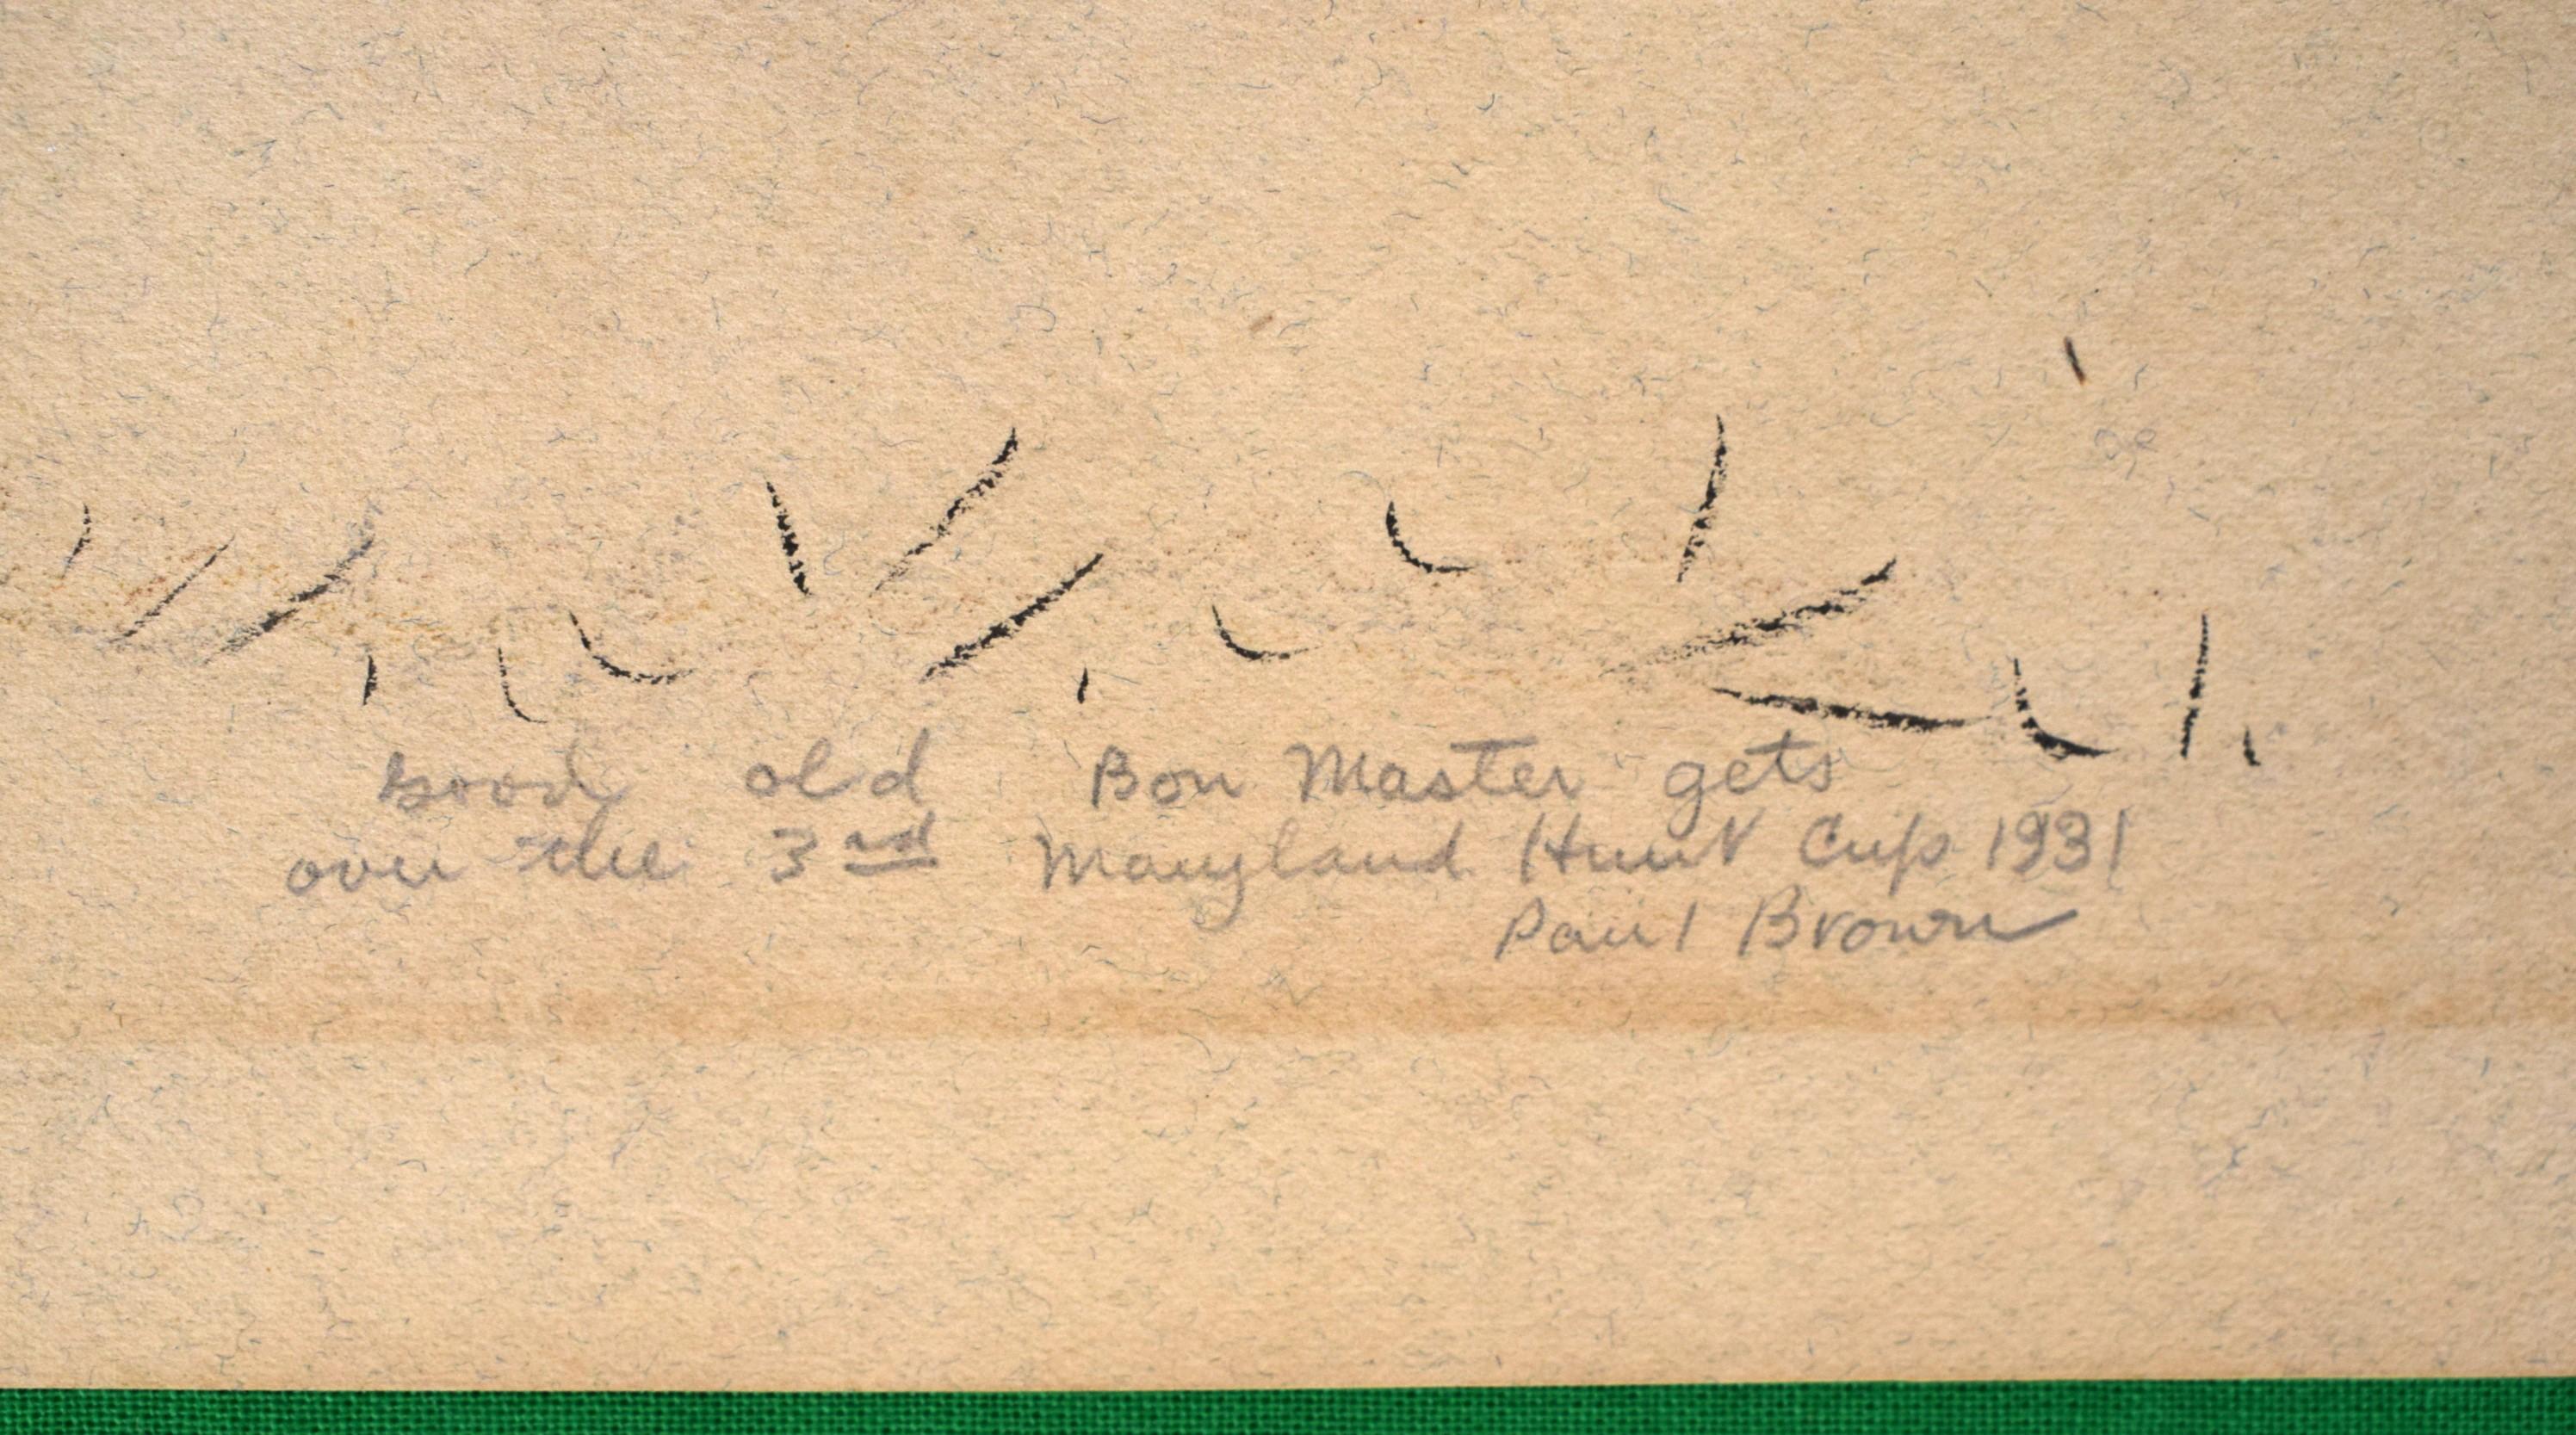 good old Bon Master gets
over the 3rd Maryland Hunt Cup 1931
Paul Brown